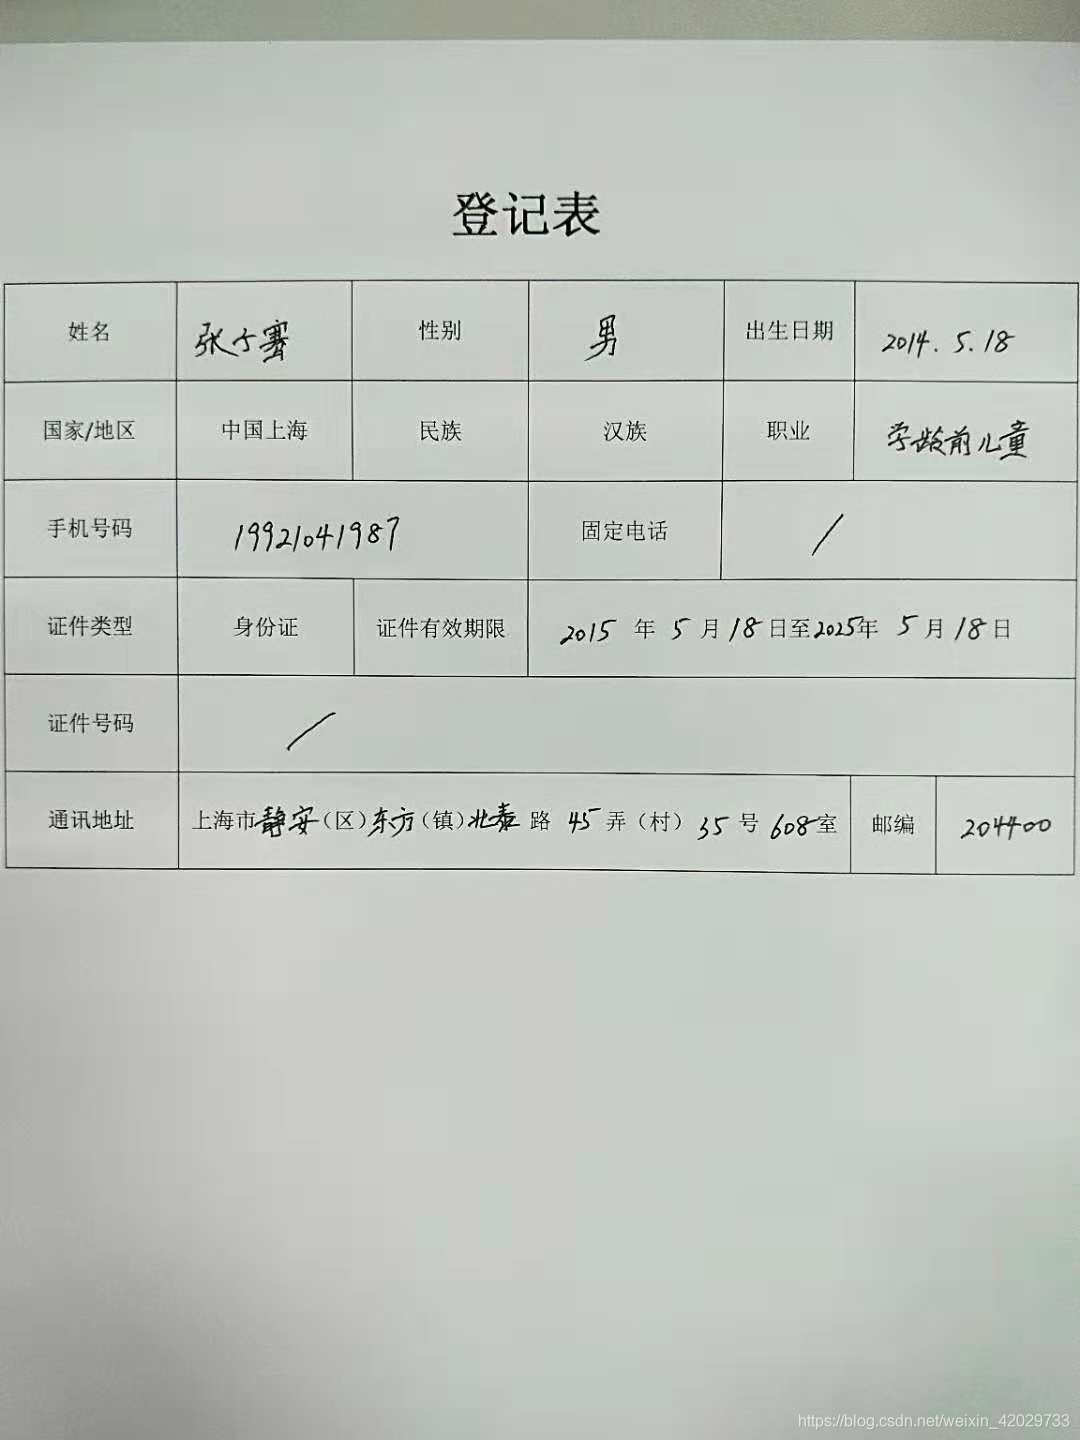 登记表
姓名 张子骞 性别 男 出生日期 2014.5.18
国家/地区 中国上海 民族 汉族 职业 学龄前儿童
手机号码 19921041987 固定电话 /
证件类型 身份证 证件有效期限 2015 年 5 月 18 日至2025年 5 月 18 日
证件号码 /
通讯地址 上海市静安(区)东方(镇)北泰 路 45 弄(村) 35 号 608室 邮编 204400
https://blog.csdn.net/weixin_42029733